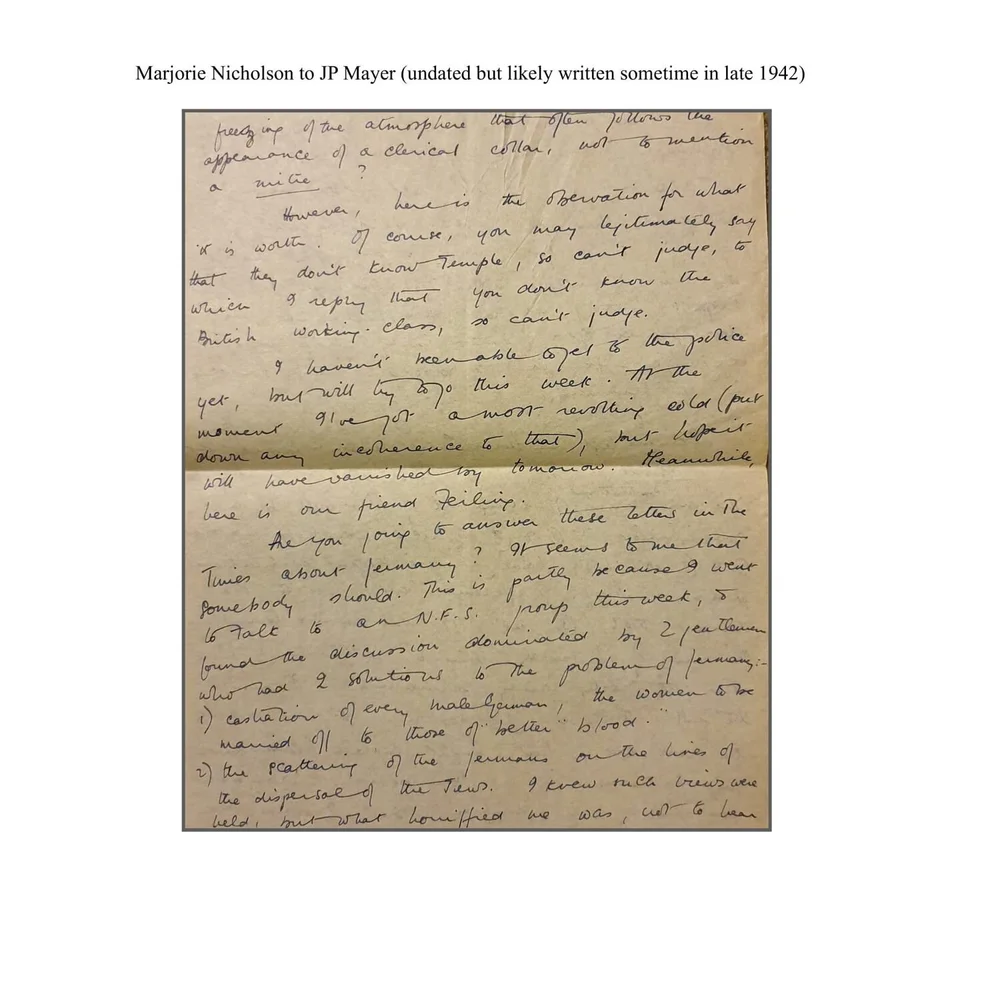 Marjorie Nicholson to JP Mayer (undated but likely written sometime in late 1942)
freezing of the atmosphere that often follows the
appearance of a clerical collar, not to mention
a mitre ?
However, here is the observation for what
it is worth. Of course, you may legitimately say
that they don't know Temple, so can't judge, to
which I reply that you don't know the
British working-class, so can't judge.
I haven't been able to get to the police
yet, but will try to go this week. At the
moment I've got a most revolting cold (put
down any incoherence to that), but hope it
will have vanished by tomorrow. Meanwhile,
here is our friend Feiling.
Are you going to answer these letters in The
Times about Germany ? It seems to me that
somebody should. This is partly because I went
to talk to an N.F.S. group this week, &
found the discussion dominated by 2 gentlemen
who had 2 solutions to the problem of Germany:-
1) castration of every male German, the women to be
married off to those of "better" blood."
2) the scattering of the Germans on the lines of
the dispersal of the Jews. I knew such views were
held, but what horrified me was, not to hear